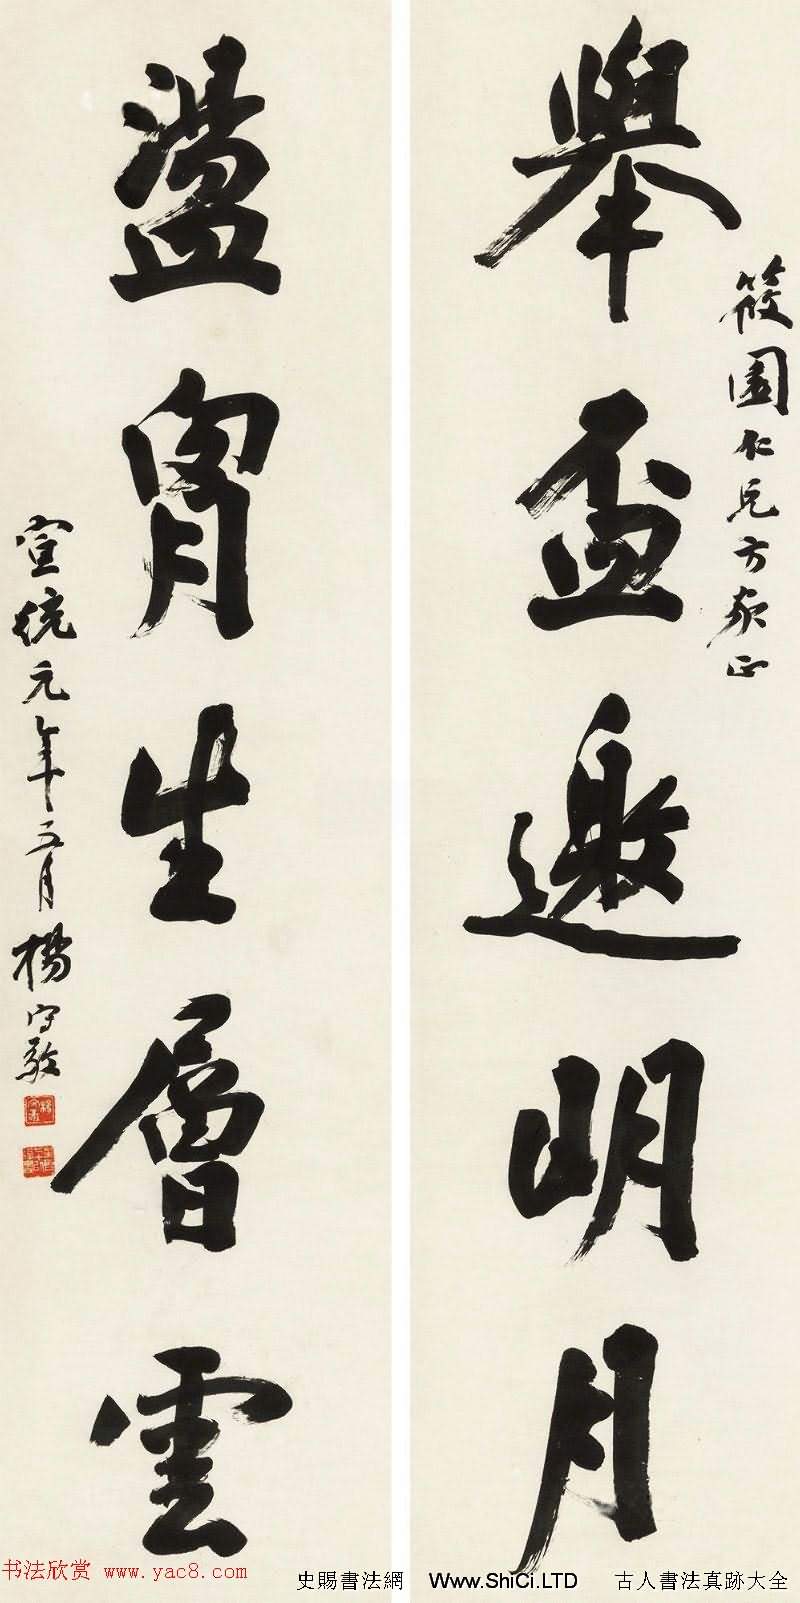 舉盃邀明月
筱園仁兄方家正
盪胷生層雲
宣統元年十二月
楊守敬
书法欣赏 www.yac8.com
史賜書法網
Www.ShiCi.LTD
古人書法真跡大全